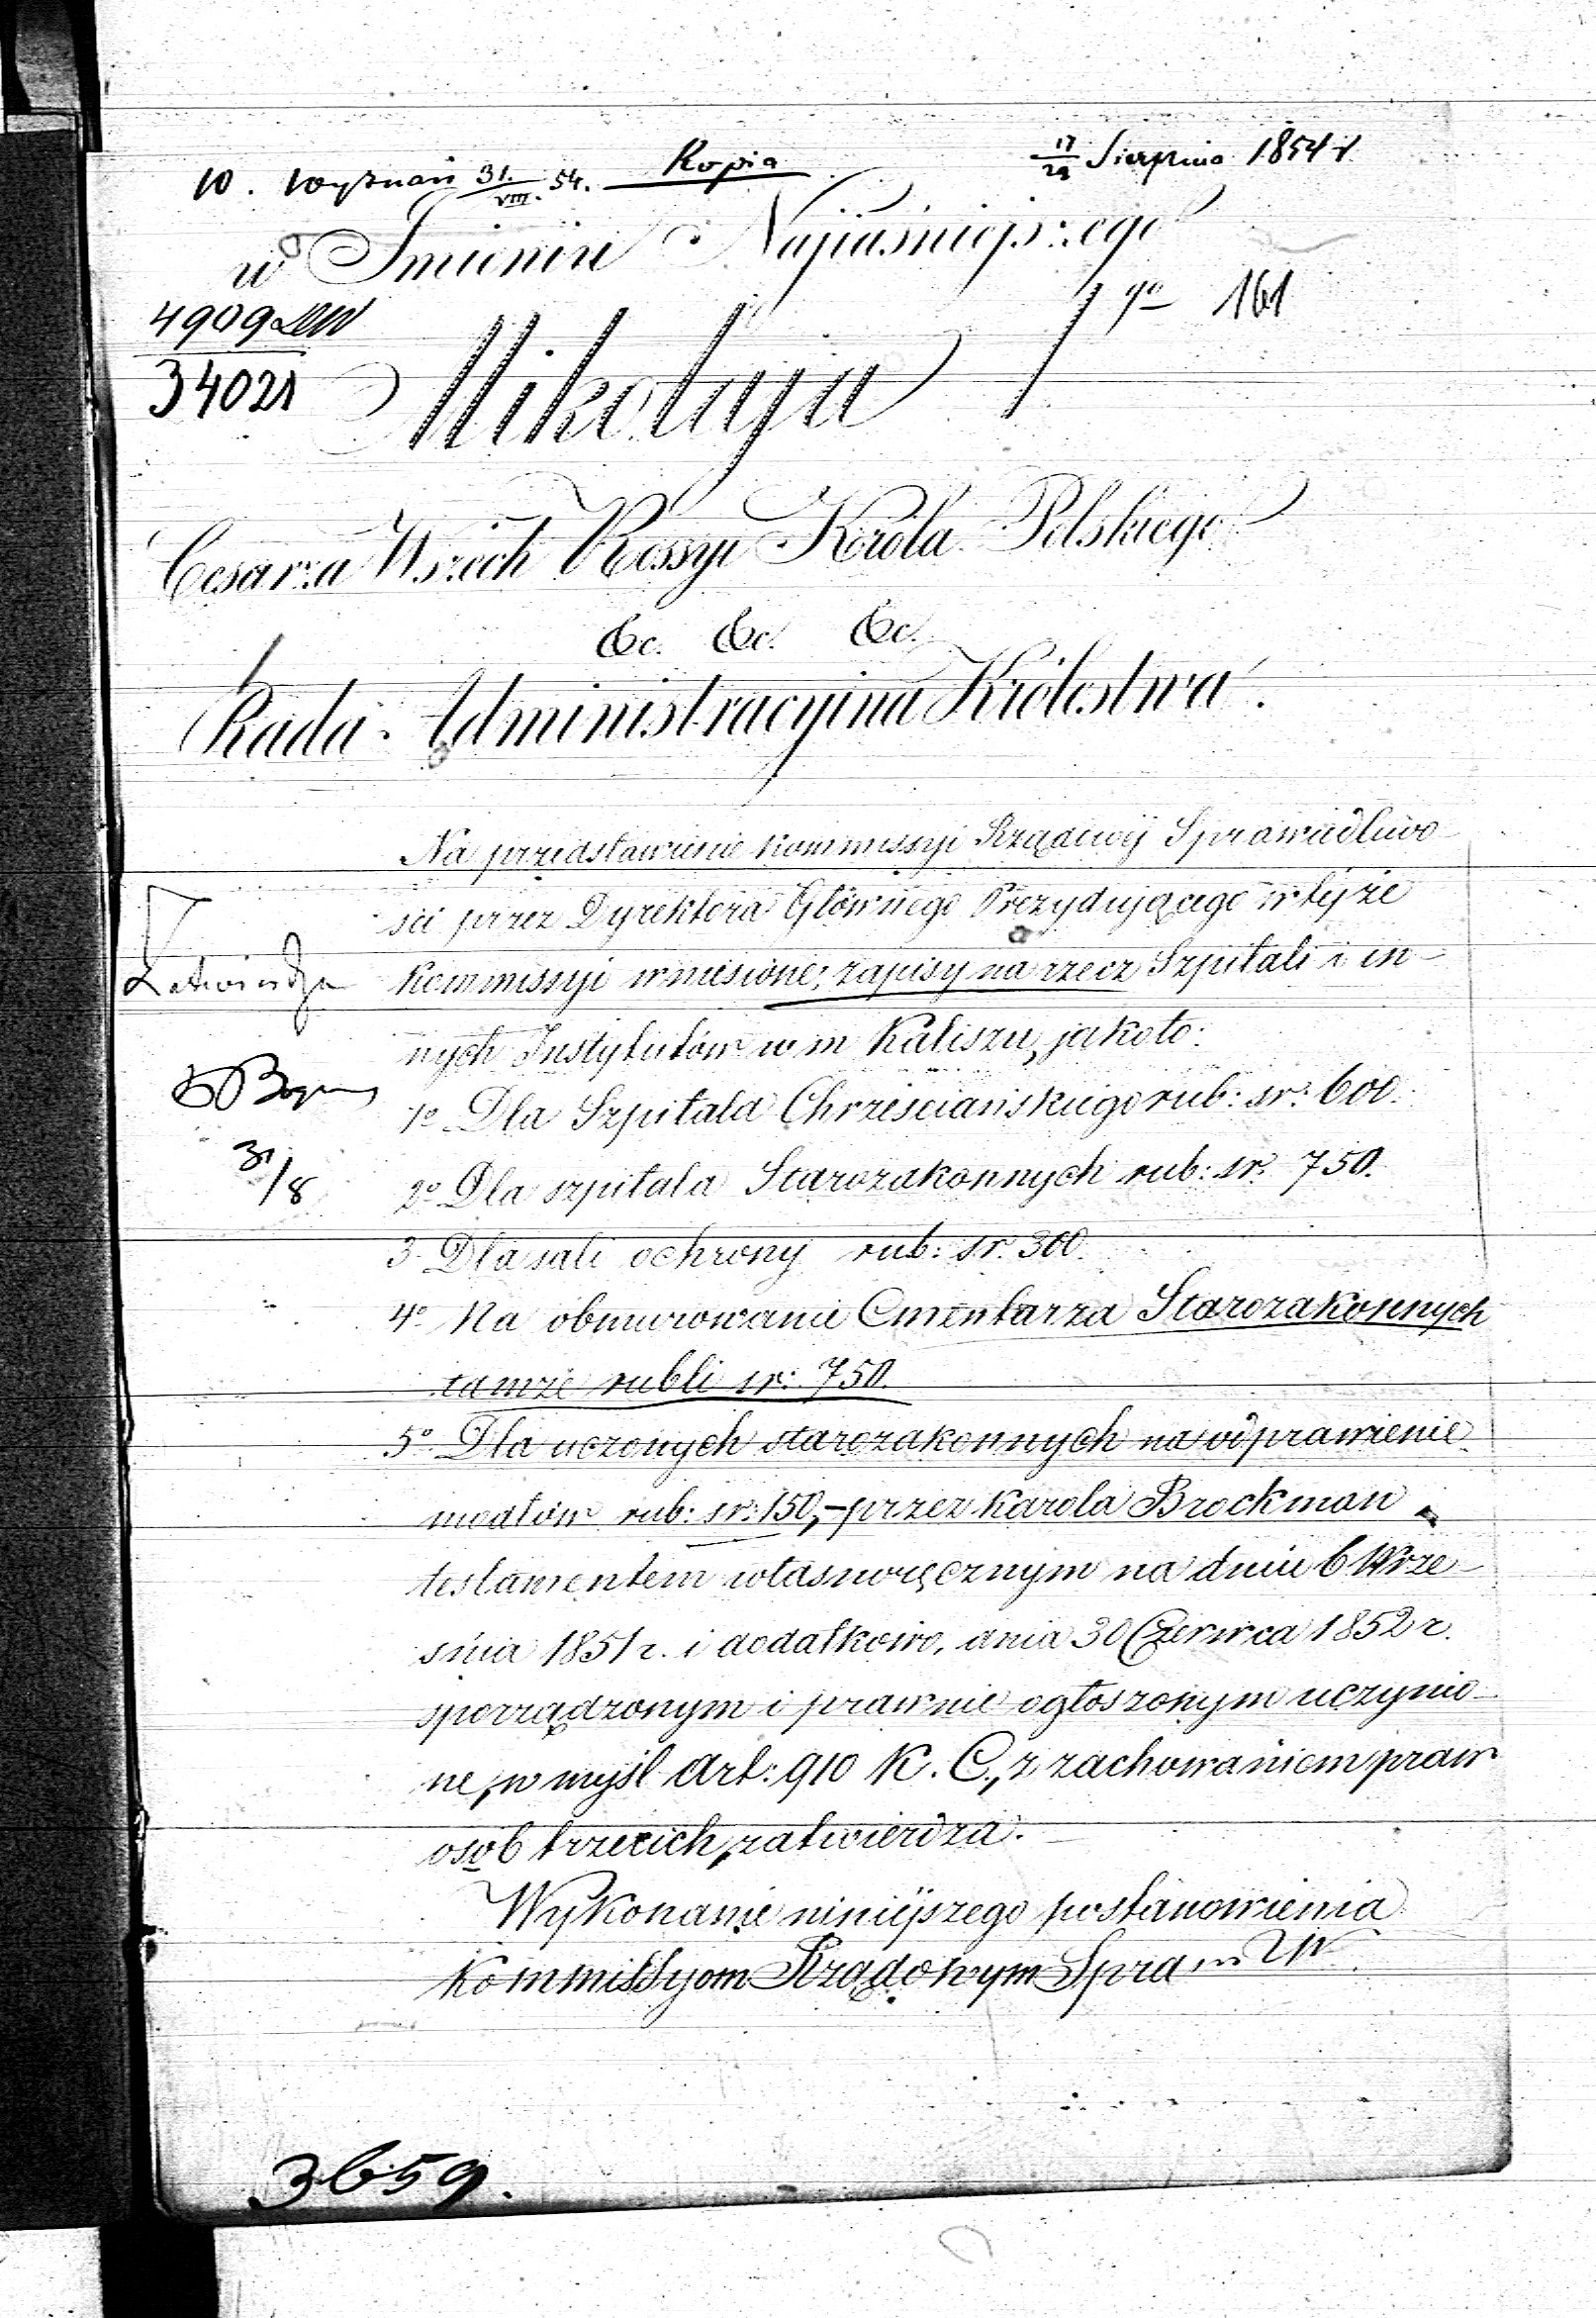 W. Wyznań 31/VIII. 54. Kopia 17/29 Sierpnia 1854 r.
w Imieniu Najjaśniejszego
4909 161
34021 Mikołaja Igo
Cesarza Wszech Rossyi Króla Polskiego
&c. &c. &c.
Rada Administracyjna Królestwa.
Na przedstawienie Kommissyi Rządowéj Sprawiedliwo-
ści przez Dyrektora Głównego Prezydującego w tejże
Kommissyi wniesione, zapisy na rzecz Szpitali i in-
nych Instytutów w m Kaliszu, jakoto:
1o Dla Szpitala Chrześciańskiego rub: sr: 600.
2o Dla szpitala Starozakonnych rub: sr. 750.
31/8
3 Dla sali ochrony rub: sr. 300.
4o Na obmurowanie Cmentarza Starozakonnych
tamże rubli sr: 750.
5o Dla uczonych starozakonnych na odprawienie
modłów rub: sr: 150,- przez Karola Brockman
testamentem własnoręcznym na dniu 6 Wrze-
śnia 1851 r. i dodatkowo, dnia 30 Czerwca 1852 r.
sporządzonym i prawnie ogłoszonym uczynio-
ne, w myśl Art: 910 K. C., z zachowaniem praw
osób trzecich, zatwierdza.
Wykonanie niniéjszego postanowienia
Kommissyom Rządowym Spraw W
3659.